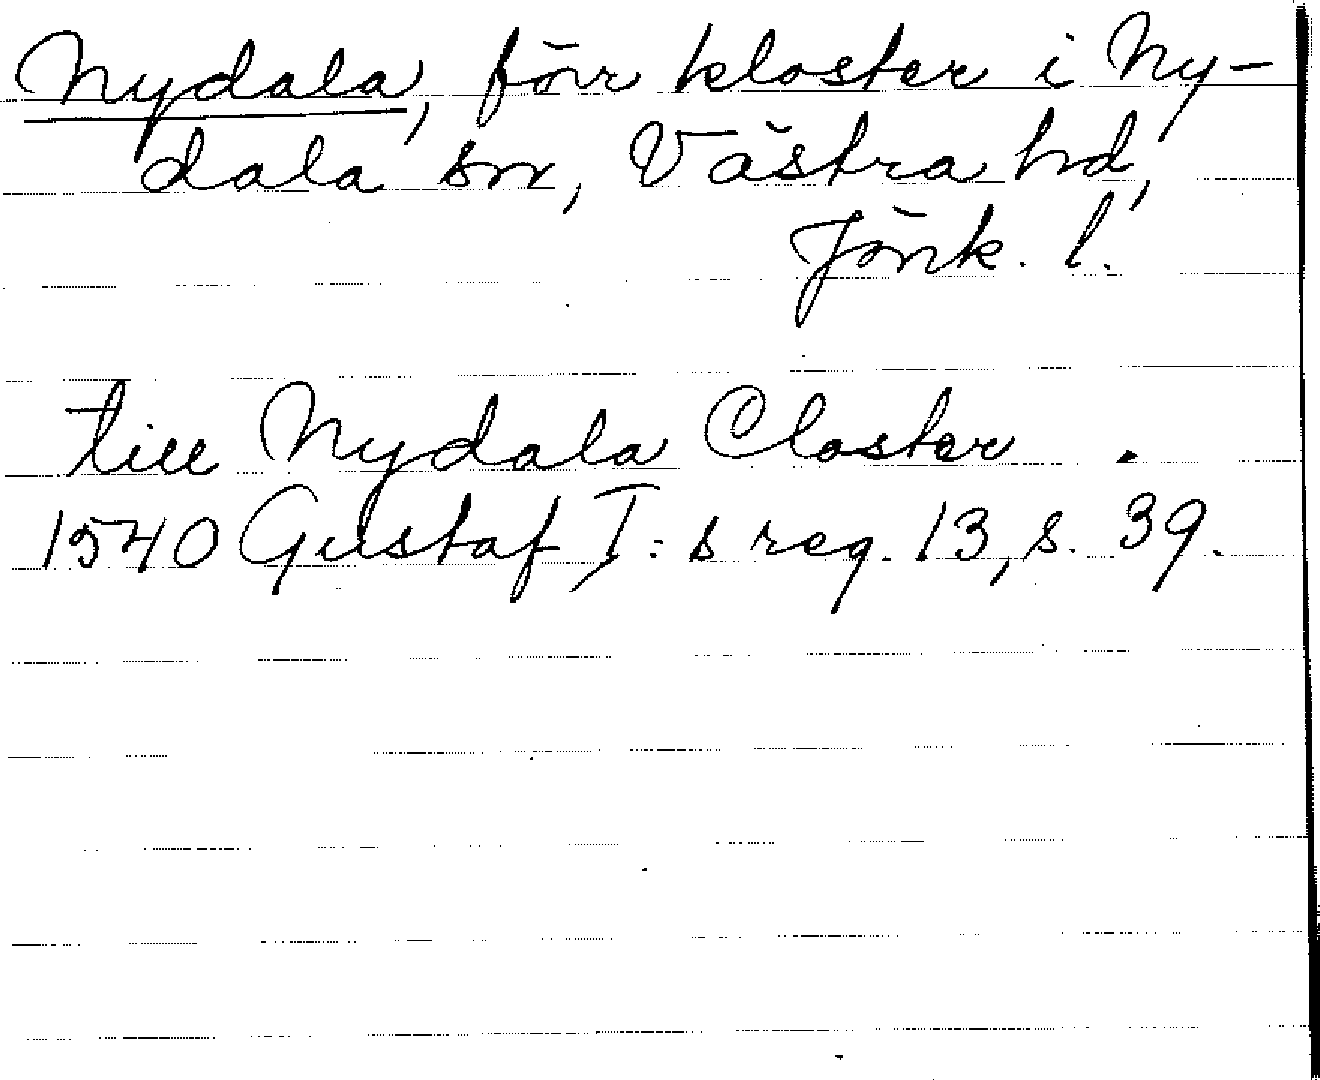 Nydala, förr kloster i Ny-
dala sn, Västra hd,
Jönk. l.
till Nydala Closter .
1540 Gustaf I:s reg. 13, s. 39.